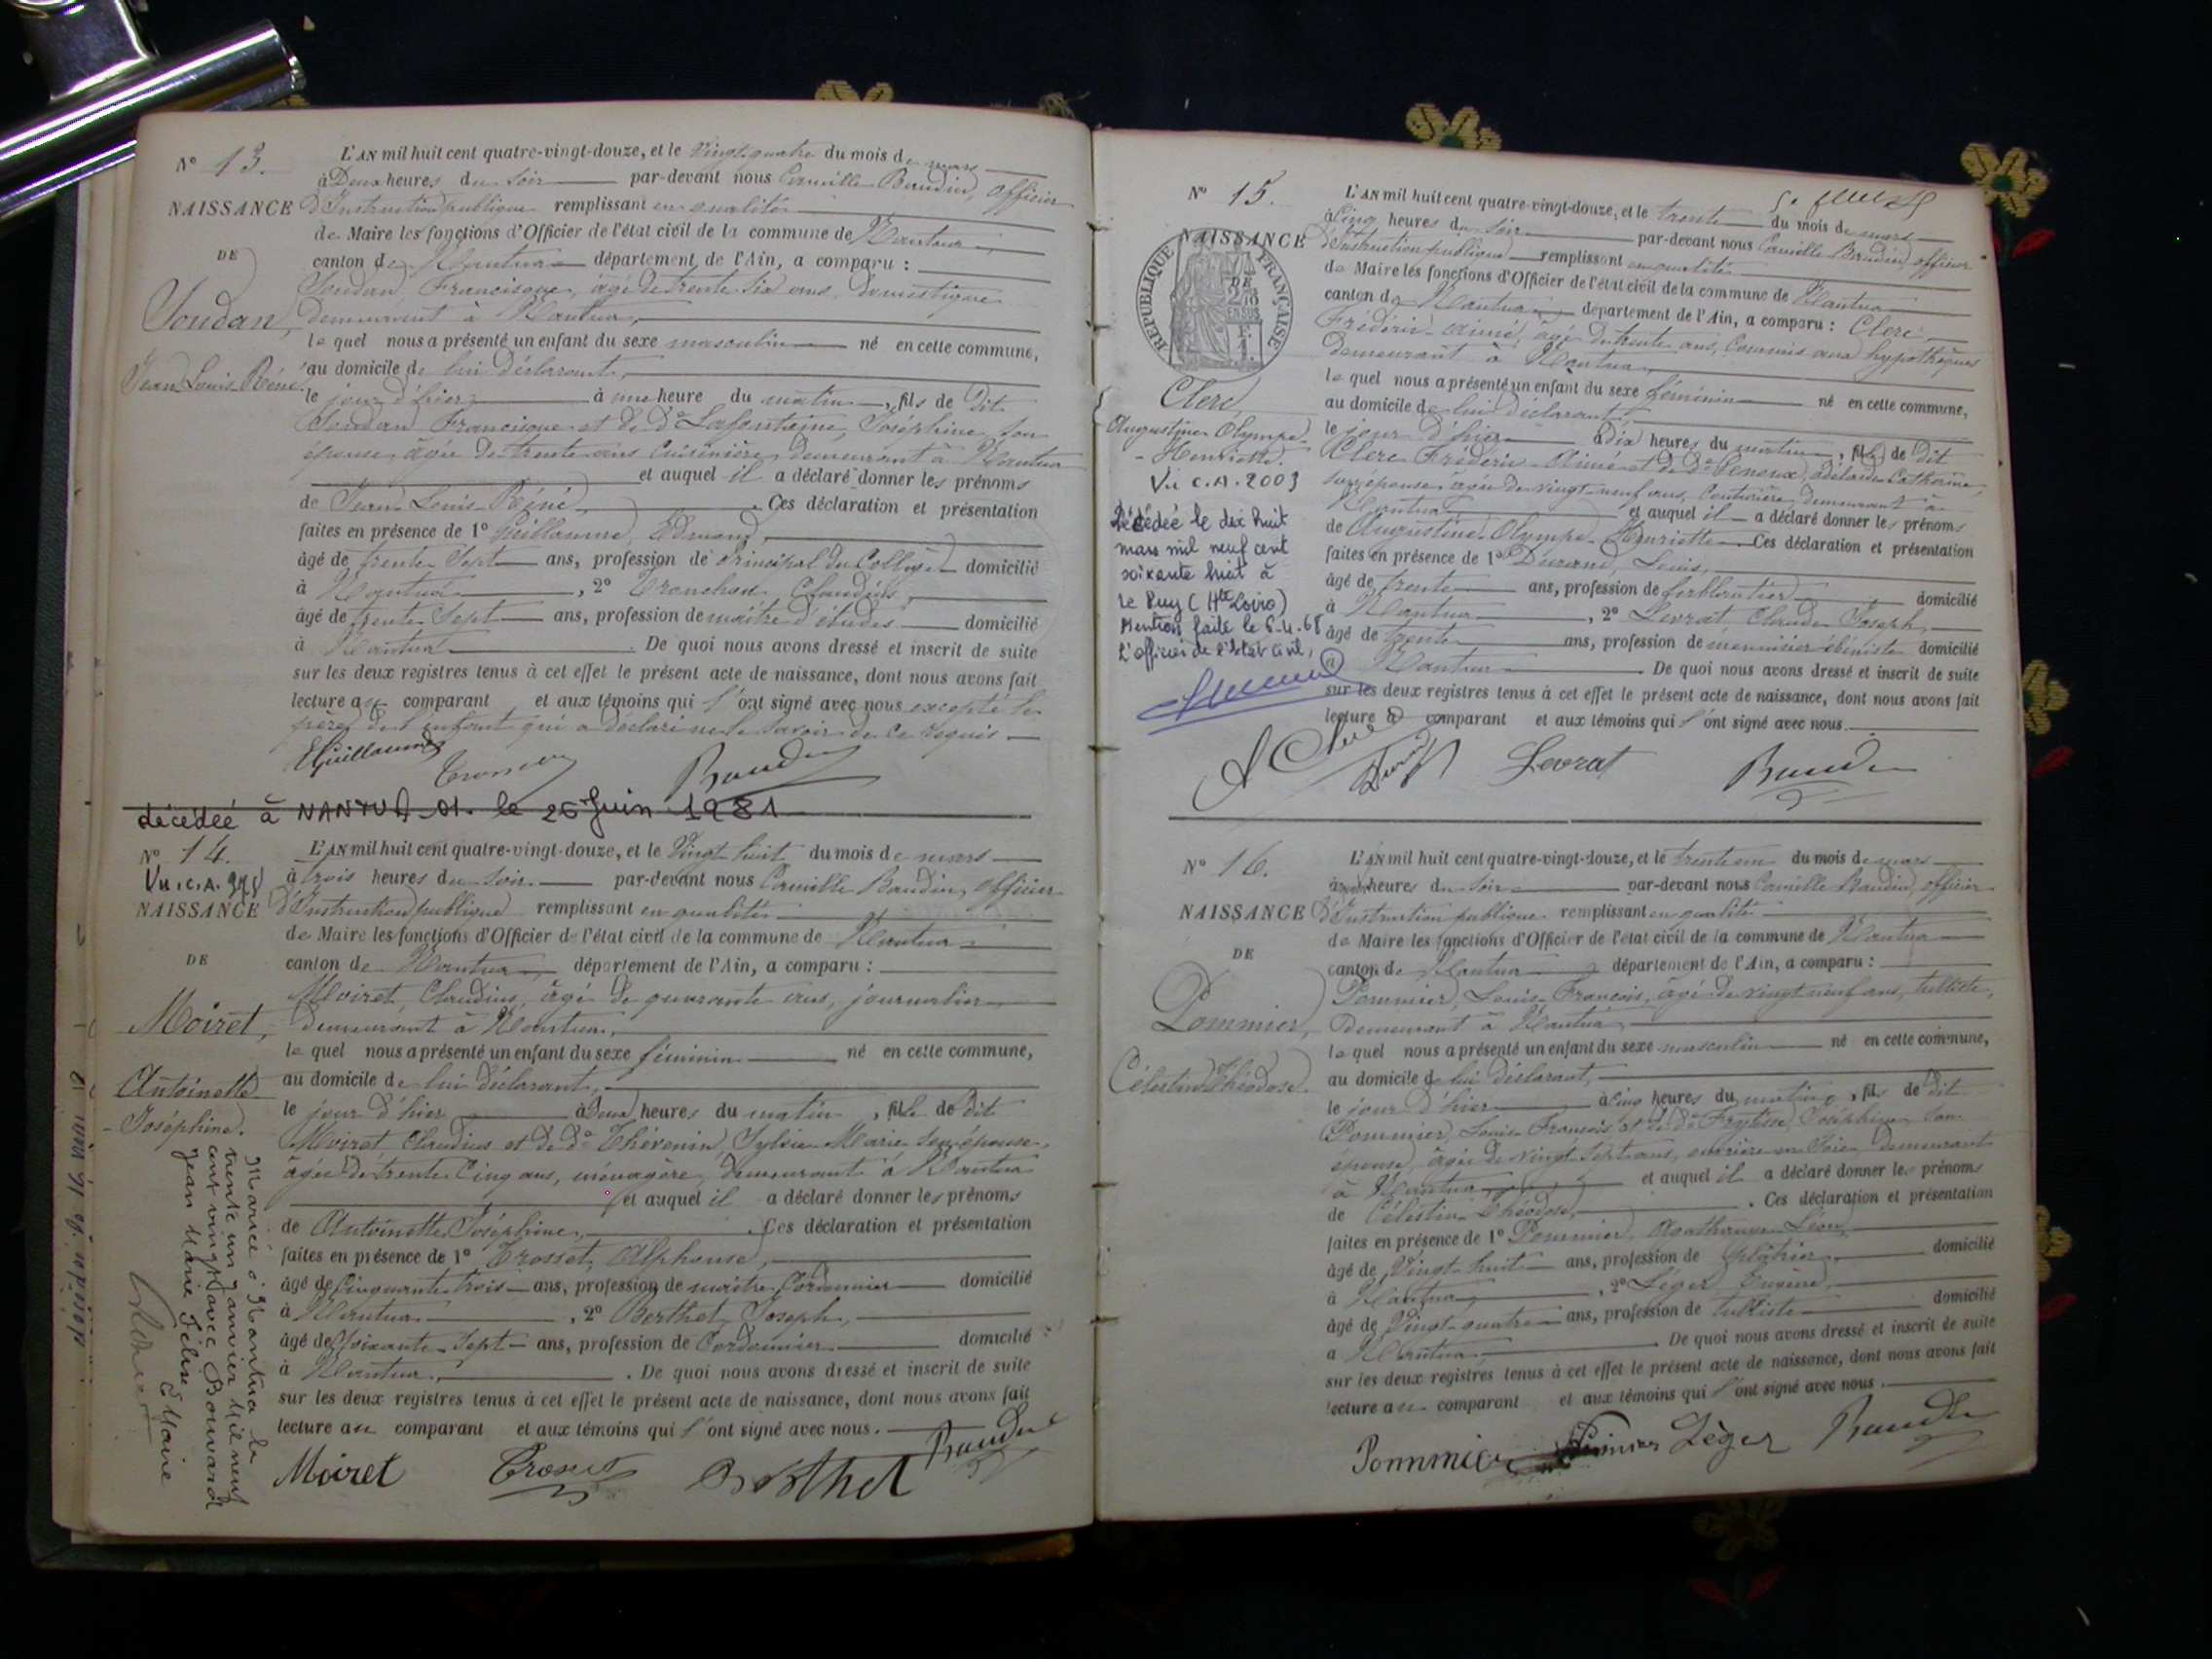 N° 13.
L'AN mil huit cent quatre-vingt-douze, et le Vingt quatre du mois de mars
à Deux heures du Soir par-devant nous Camille Baudin, officier
NAISSANCE
d'Instruction publique remplissant en qualité
de Maire les fonctions d'Officier de l'état civil de la commune de Nantua
DE
canton de Nantua département de l'Ain, a comparu :
Joudan, Francisque, âgé de trente six ans, domestique
Joudan,
demeurant à Nantua,
le quel nous a présenté un enfant du sexe masculin né en cette commune,
Jean Louis Réné.
au domicile de lui déclarant,
le jour d'hier à une heure du matin, fils de dit
Joudan Francisque et de de Lafontaine, Joséphine, son
épouse, âgée de trente ans Cuisinière, demeurant à Nantua
et auquel il a déclaré donner les prénoms
de Jean Louis Réné. Ces déclaration et présentation
faites en présence de 1° Guillaume, Edmond,
âgé de trente Sept ans, profession de Principal du Collège domicilié
à Nantua, 2° Tronchon Claudius,
âgé de trente Sept ans, profession de maître d'études domicilié
à Nantua. De quoi nous avons dressé et inscrit de suite
sur les deux registres tenus à cet effet le présent acte de naissance, dont nous avons fait
lecture au comparant et aux témoins qui l'ont signé avec nous excepté le
père de l'enfant qui a déclaré ne le savoir de ce requis
EGuillaume
Baudin
décédée à NANTUA_01. le 26 Juin 1981
N° 14.
L'AN mil huit cent quatre-vingt-douze, et le Vingt huit du mois de mars
Vu.C.A.
à trois heures du Soir. par-devant nous Camille Baudin, officier
NAISSANCE
d'Instruction publique remplissant en qualité
de Maire les fonctions d'Officier de l'état civil de la commune de Nantua
DE
canton de Nantua, département de l'Ain, a comparu :
Moiret, Claudius, âgé de quarante ans, journalier
Moiret,
demeurant à Nantua,
le quel nous a présenté un enfant du sexe féminin né en cette commune,
Antoinette
au domicile de lui déclarant,
le jour d'hier à Deux heures du matin, fille de dit
Joséphine.
Moiret Claudius et de de Thévenin, Sylvie Marie son épouse,
âgée de trente Cinq ans, ménagère, demeurant à Nantua
et auquel il a déclaré donner les prénoms
de Antoinette Joséphine, Ces déclaration et présentation
faites en présence de 1° Trosset, Alphonse,
âgé de Cinquante trois ans, profession de maître Cordonnier domicilié
à Nantua, 2° Berthet, Joseph,
âgé de Soixante Sept ans, profession de Cordonnier domicilié
à Nantua. De quoi nous avons dressé et inscrit de suite
sur les deux registres tenus à cet effet le présent acte de naissance, dont nous avons fait
lecture au comparant et aux témoins qui l'ont signé avec nous.
Moiret
Berthet
Baudin
Mariée à Nantua le
trente un janvier Mil neuf
cent vingt avec Bouvard
Jean Marie Félise.
Le Maire
N° 15.
L'AN mil huit cent quatre-vingt-douze, et le trente du mois de mars
à Cinq heures du Soir par-devant nous Camille Baudin, officier
NAISSANCE
d'Instruction publique remplissant en qualité
RÉPUBLIQUE FRANÇAISE
DE
de Maire les fonctions d'Officier de l'état civil de la commune de Nantua
canton de Nantua département de l'Ain, a comparu : Clerc,
Frédéric Aimé, âgé de trente ans, Commis aux hypothèques
demeurant à Nantua,
le quel nous a présenté un enfant du sexe féminin né en cette commune,
Clerc,
au domicile de lui déclarant,
Augustine Olympe
Henriette.
le jour d'hier à dix heures du matin, fille de dit
Clerc Frédéric Aimé et de de adélaïde Catherine,
son épouse, âgée de vingt neuf ans, Couturière, demeurant à
Nantua et auquel il a déclaré donner les prénoms
de Augustine Olympe Henriette. Ces déclaration et présentation
faites en présence de 1° Durand, Louis,
âgé de trente ans, profession de ferblantier domicilié
à Nantua, 2° Levrat Claude Joseph,
âgé de trente ans, profession de menuisier ébéniste domicilié
à Nantua De quoi nous avons dressé et inscrit de suite
sur les deux registres tenus à cet effet le présent acte de naissance, dont nous avons fait
lecture à comparant et aux témoins qui l'ont signé avec nous.
Vu C.A. 2003
Décédée le dix huit
mars mil neuf cent
soixante huit à
le Puy (Hte Loire)
Mention faite le 8.4.68
L'officier de l'état civil,
A Clerc
Durand
Levrat
Baudin
N° 16.
L'AN mil huit cent quatre-vingt-douze, et le trente un du mois de mars
heures du Soir par-devant nous Camille Baudin, officier
NAISSANCE
d'Instruction publique remplissant en qualité
de Maire les fonctions d'Officier de l'état civil de la commune de Nantua
DE
canton de Nantua département de l'Ain, a comparu :
Pommier, Louis François, âgé de vingt neuf ans, tulliste,
Pommier,
demeurant à Nantua,
le quel nous a présenté un enfant du sexe masculin né en cette commune,
Célestin Théodose.
au domicile de lui déclarant,
le jour d'hier à Cinq heures du matin, fils de dit
Pommier, Louis François et de de Joséphine son
épouse, âgée de vingt Sept ans, ouvrière en Soie, demeurant
à Nantua et auquel il a déclaré donner les prénoms
de Célestin Théodose, Ces déclaration et présentation
faites en présence de 1° Pommier, Léon,
âgé de Vingt huit ans, profession de plâtrier domicilié
à Nantua, 2° Léger Eugène,
âgé de Vingt quatre ans, profession de tulliste domicilié
à Nantua. De quoi nous avons dressé et inscrit de suite
sur les deux registres tenus à cet effet le présent acte de naissance, dont nous avons fait
lecture au comparant et aux témoins qui l'ont signé avec nous.
Pommier Léger Baudin